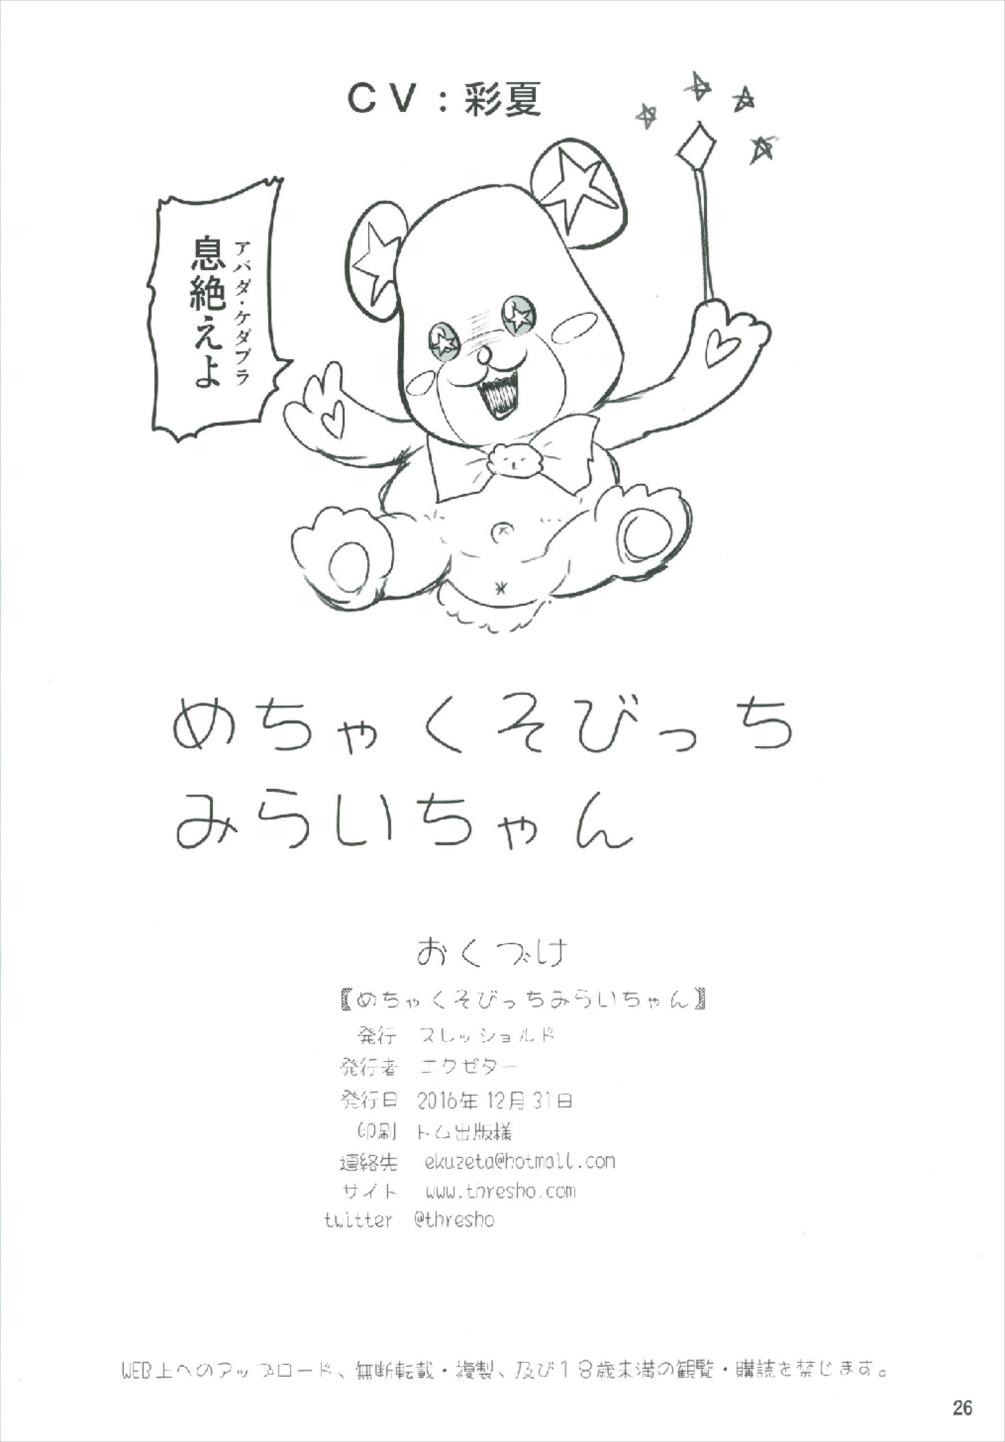 CV：彩夏
アバダ・ケダブラ
息絶えよ
めちゃくそびっち
みらいちゃん
おくづけ
【めちゃくそびっちみらいちゃん】
発行 スレッショルド
発行者 エクゼター
発行日 2016年12月31日
印刷 トム出版様
連絡先 ekuzeta@hotmail.com
サイト www.thresho.com
twitter @thresho
WEB上へのアップロード、無断転載・複製、及び18歳未満の観覧・購読を禁じます。
26